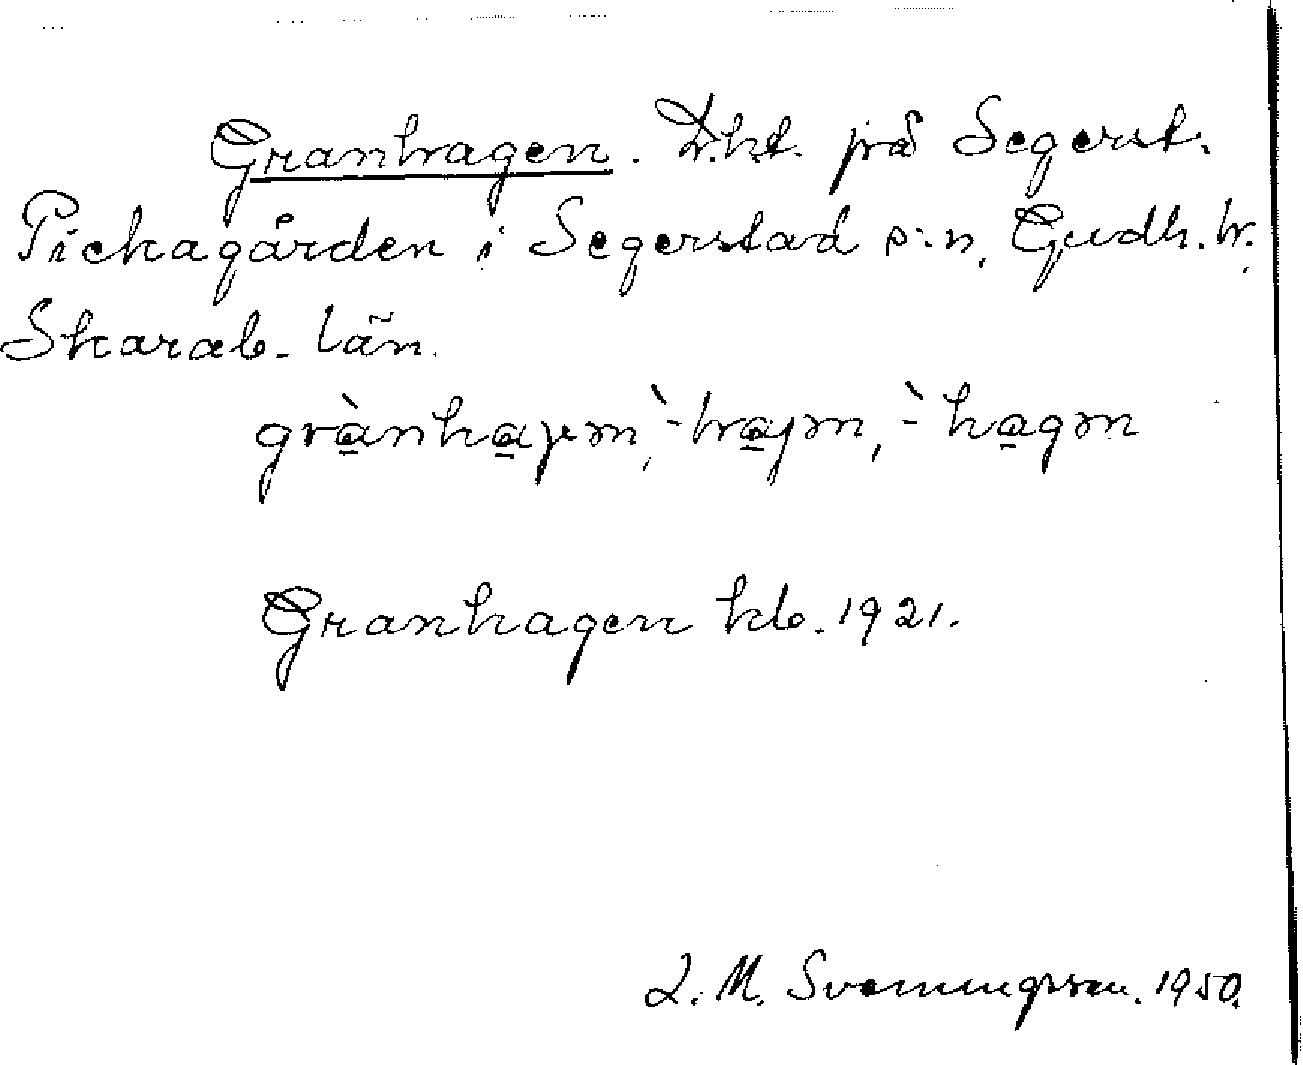 Granhagen. L.ht. på Segerst.
Pickagården i Segerstad s:n, Gudh. h.
Skarab. län.
grànhaγən, `-hajən, `-hagən
Granhagen kb. 1921.
L. M. Svenungsson. 1950.